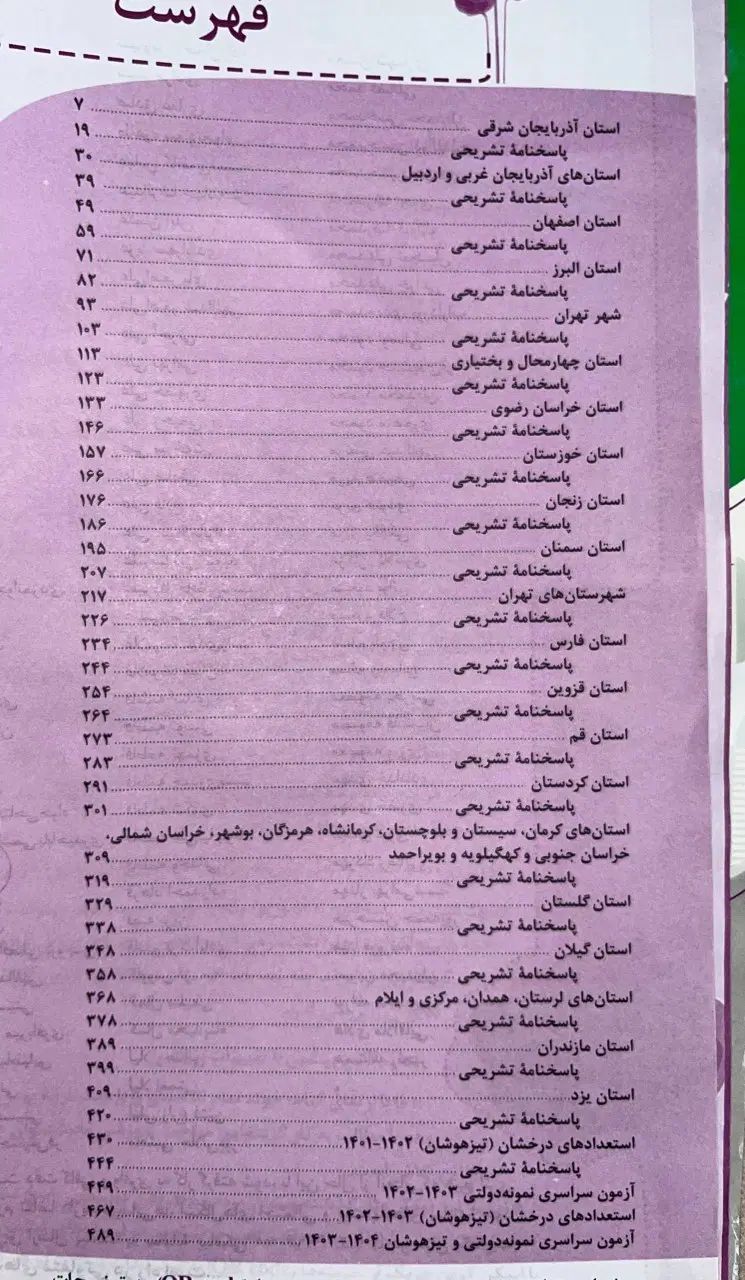 فهرست
استان آذربایجان شرقی ........ ۷
پاسخنامهٔ تشریحی ........ ۱۹
استان‌های آذربایجان غربی و اردبیل ........ ۳۰
پاسخنامهٔ تشریحی ........ ۳۹
استان اصفهان ........ ۴۹
پاسخنامهٔ تشریحی ........ ۵۹
استان البرز ........ ۷۱
پاسخنامهٔ تشریحی ........ ۸۲
شهر تهران ........ ۹۳
پاسخنامهٔ تشریحی ........ ۱۰۳
استان چهارمحال و بختیاری ........ ۱۱۳
پاسخنامهٔ تشریحی ........ ۱۲۳
استان خراسان رضوی ........ ۱۳۳
پاسخنامهٔ تشریحی ........ ۱۴۶
استان خوزستان ........ ۱۵۷
پاسخنامهٔ تشریحی ........ ۱۶۶
استان زنجان ........ ۱۷۶
پاسخنامهٔ تشریحی ........ ۱۸۶
استان سمنان ........ ۱۹۵
پاسخنامهٔ تشریحی ........ ۲۰۷
شهرستان‌های تهران ........ ۲۱۷
پاسخنامهٔ تشریحی ........ ۲۲۶
استان فارس ........ ۲۳۴
پاسخنامهٔ تشریحی ........ ۲۴۴
استان قزوین ........ ۲۵۴
پاسخنامهٔ تشریحی ........ ۲۶۴
استان قم ........ ۲۷۳
پاسخنامهٔ تشریحی ........ ۲۸۳
استان کردستان ........ ۲۹۱
پاسخنامهٔ تشریحی ........ ۳۰۱
استان‌های کرمان، سیستان و بلوچستان، کرمانشاه، هرمزگان، بوشهر، خراسان شمالی،
خراسان جنوبی و کهگیلویه و بویراحمد ........ ۳۰۹
پاسخنامهٔ تشریحی ........ ۳۱۹
استان گلستان ........ ۳۲۹
پاسخنامهٔ تشریحی ........ ۳۳۸
استان گیلان ........ ۳۴۸
پاسخنامهٔ تشریحی ........ ۳۵۸
استان‌های لرستان، همدان، مرکزی و ایلام ........ ۳۶۸
پاسخنامهٔ تشریحی ........ ۳۷۸
استان مازندران ........ ۳۸۹
پاسخنامهٔ تشریحی ........ ۳۹۹
استان یزد ........ ۴۰۹
پاسخنامهٔ تشریحی ........ ۴۲۰
استعدادهای درخشان (تیزهوشان) ۱۴۰۲-۱۴۰۱ ........ ۴۳۰
پاسخنامهٔ تشریحی ........ ۴۴۴
آزمون سراسری نمونه‌دولتی ۱۴۰۳-۱۴۰۲ ........ ۴۴۹
استعدادهای درخشان (تیزهوشان) ۱۴۰۳-۱۴۰۲ ........ ۴۶۷
آزمون سراسری نمونه‌دولتی و تیزهوشان ۱۴۰۴-۱۴۰۳ ........ ۴۸۹